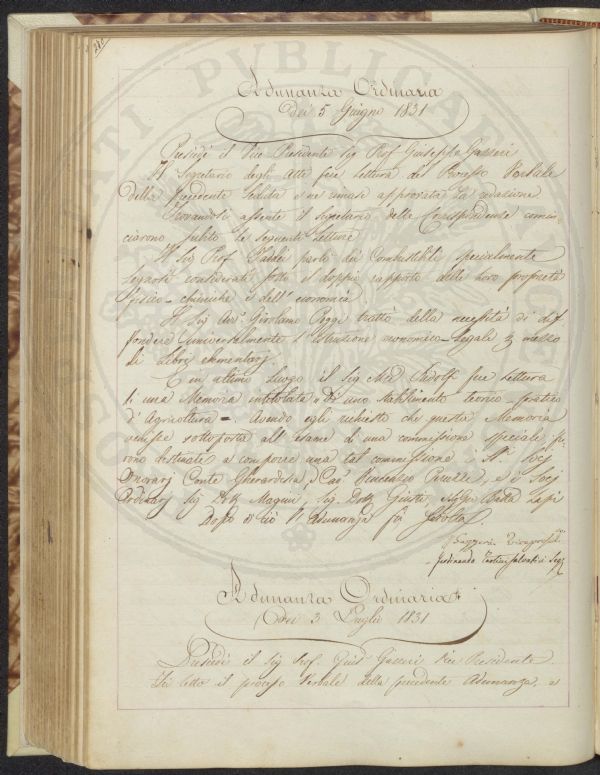 Adunanza Ordinaria
dei 5 Giugno 1831
Presiede il Vice Presidente Sig Prof Giuseppe Gazzeri
Il Segretario degli Atti fece lettura del Processo Verbale
della precedente Seduta e ne rimase approvata la redazione
Trovandosi assente il segretario delle Corrispondenze comin-
ciarono subito le seguenti letture
Il Sig Prof Taddei parlò dei Combustibili specialmente
legnosi considerati sotto il doppio rapporto delle loro proprietà
fisico-chimiche e dell'economia
Il Sig Avv Girolamo Poggi trattò della necessità di dif-
fondere universalmente l'istruzione economico-legale mezzo
di libri elementarj
E in ultimo luogo il Sig fece lettura
di una Memoria intitolata "Di uno stabilimento teorico-pratico
d'Agricoltura =. Avendo egli richiesto che questa Memoria
venisse sottoposta all'esame di una commissione speciale fu-
rono destinati a comporre una tal commissione Socj
Onorarj Conte Gherardesca, Vincenzio e i Socj
Ordinarj Sig Dott Magini, Sig. Dott Giusti, Lapi
Dopo di ciò l'Adunanza fu sciolta.
Gazzeri
Ferdinando Tartini Salvatici Seg
Adunanza Ordinaria
dei 3 Luglio 1831
Presiedè il Sig Prof. Gius Gazzeri Vice Presidente.
Fu letto il processo Verbale della precedente Adunanza, e